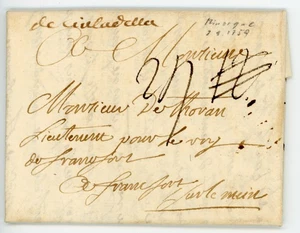 de Ciuladella
Minorque
1759
A Monsieur
Monsieur De Thoran
Lieutenent pour le roy
de francfort
a francfort
Sur le mein